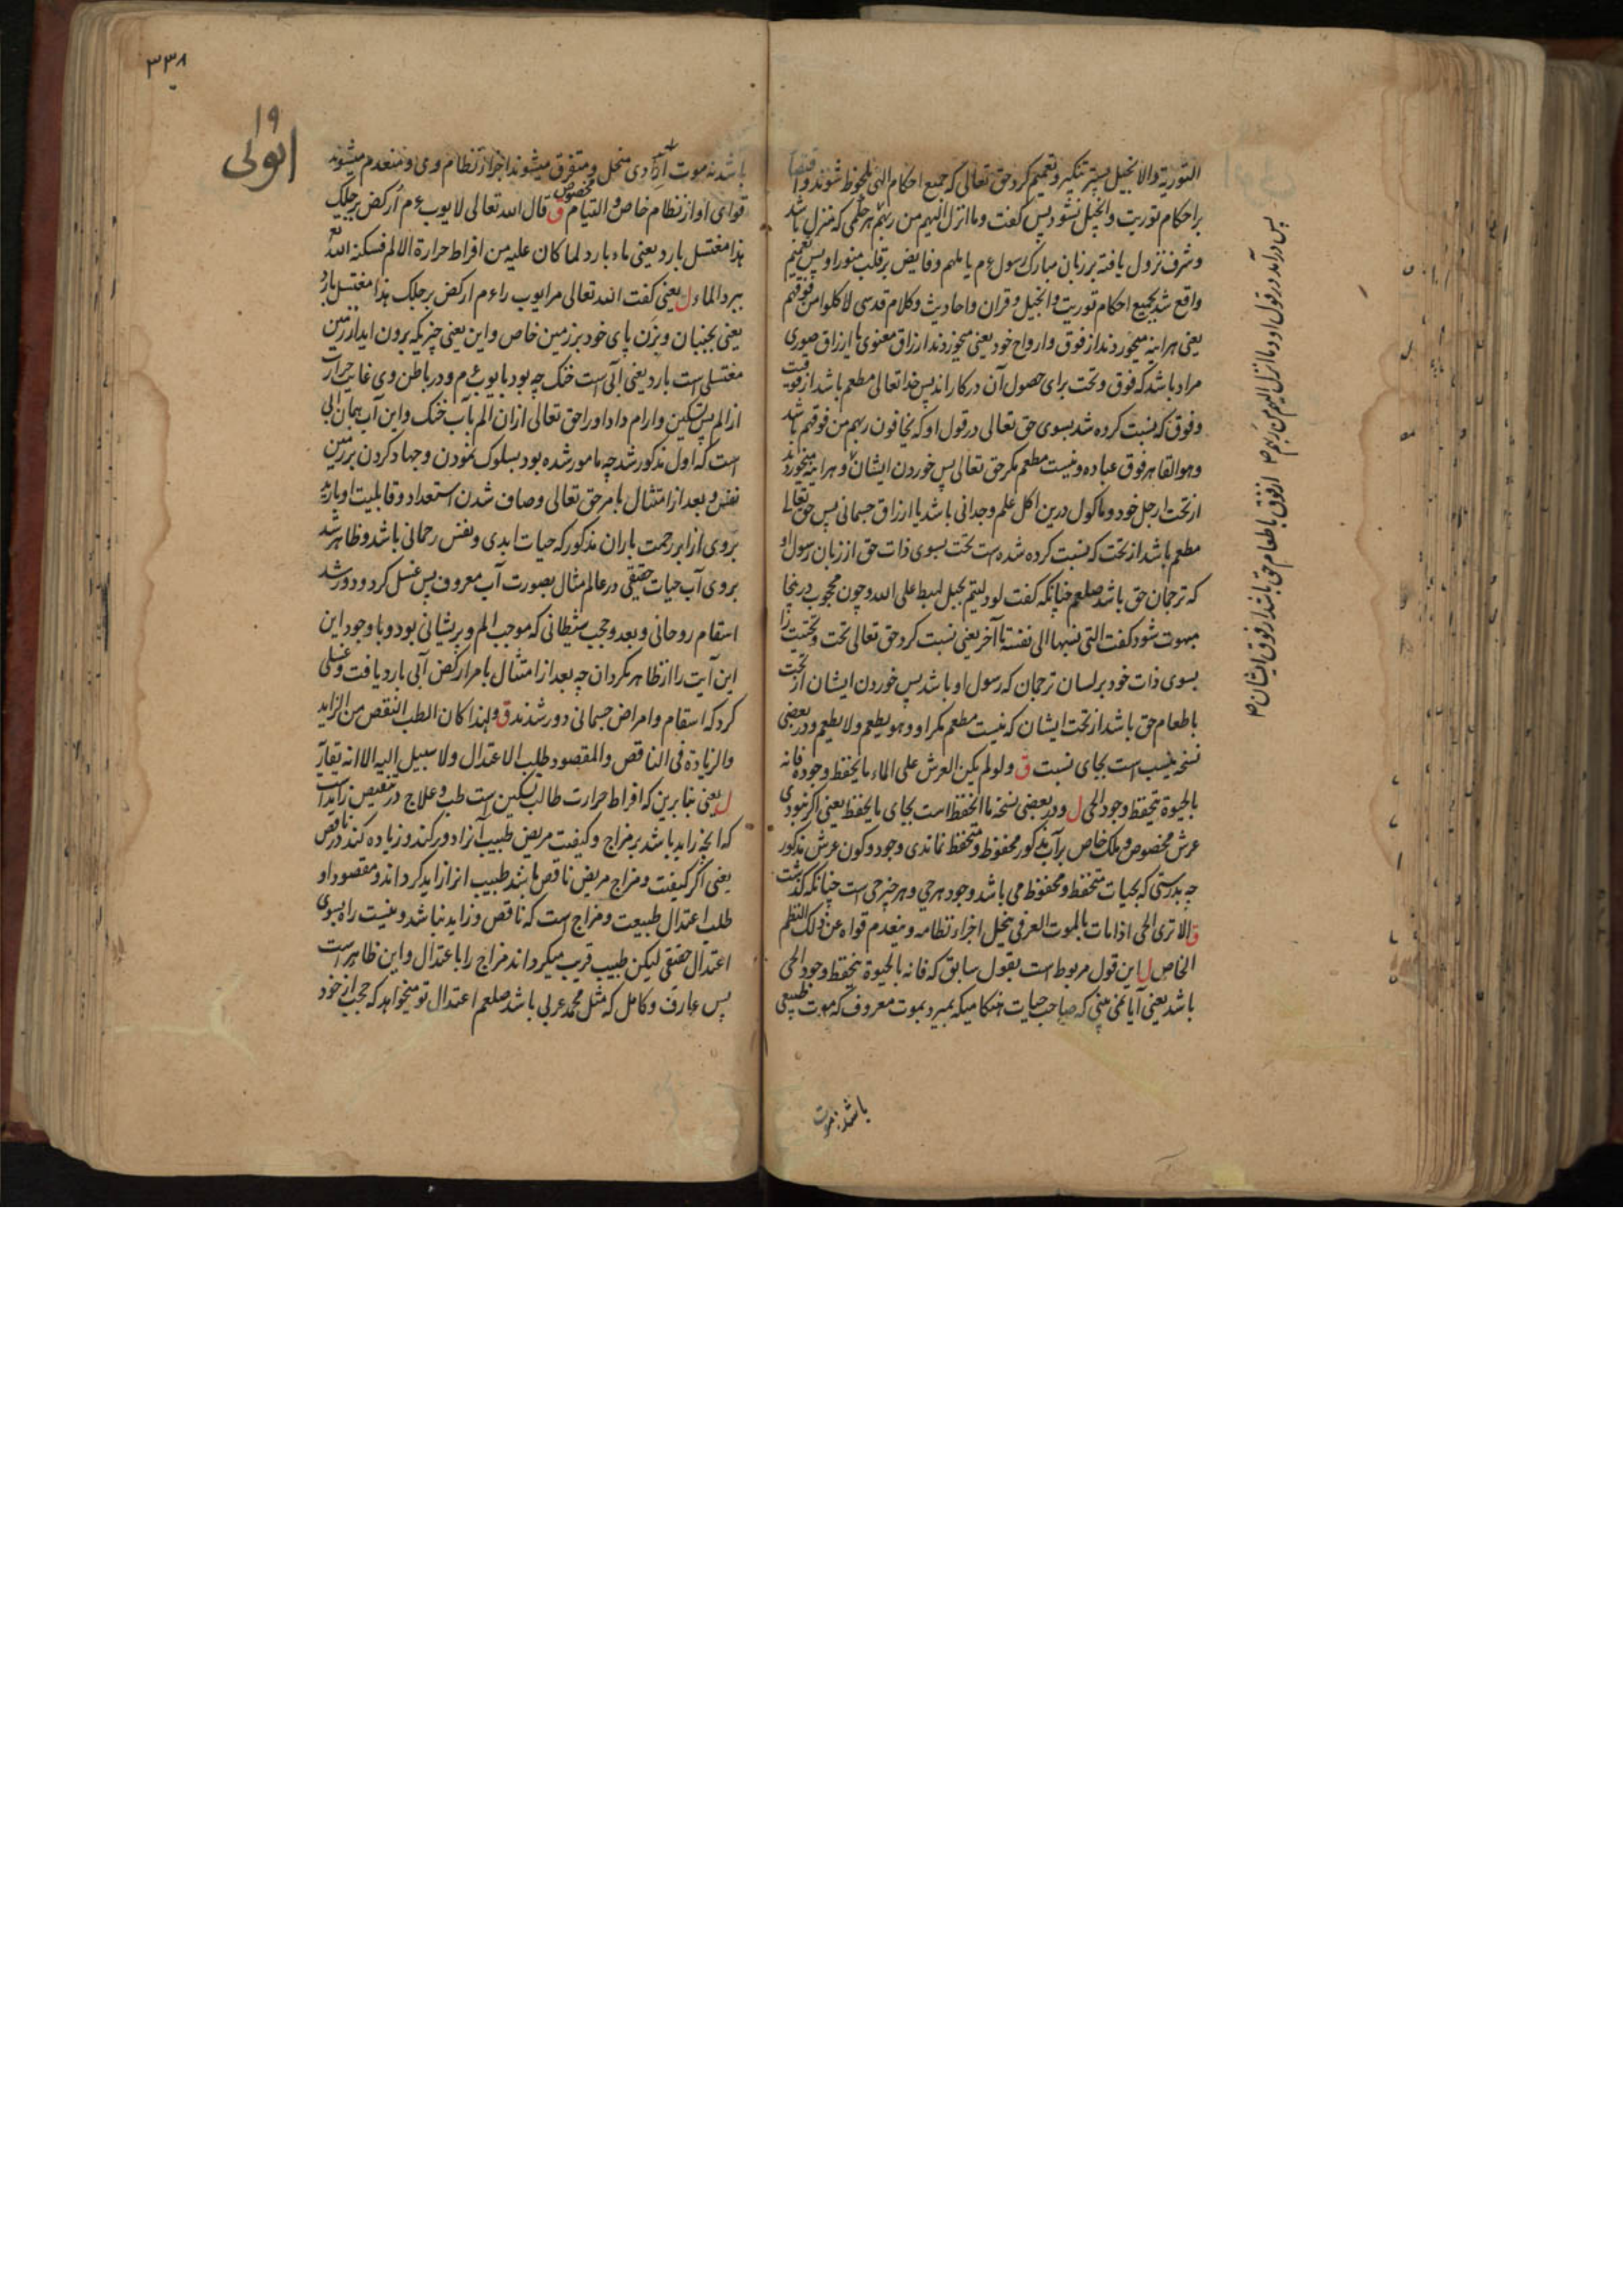 التوریة والانجیل بستر تنکیر و تعمیم کرد حق تعالی که جمیع احکام الهی ملحوظ شوند و اقتصار
بر احکام توریت و انجیل نشود پس گفت وما انزل الیهم من ربهم هر حکمی که منزل باشد
و شرف نزول یافته بر زبان مبارک رسول ع م یا ملهم و فایض بر قلب منور او پس تعمیم
واقع شد بجمیع احکام توریت و انجیل و قران و احادیث و کلام قدسی لاکلوا من فوقهم
یعنی هر اینه میخوردند از فوق و ارواح خود یعنی میخوردند ارزاق معنوی یا ارزاق صوری
مراد باشد که فوق و تحت برای حصول آن در کار اند پس خدا تعالی مطعم باشد از فوقیت
و فوق که نسبت کرده شد بسوی حق تعالی در قول او که یخافون ربهم من فوقهم باشد
وهو القاهر فوق عباده و نیست مطعم مگر حق تعالی پس خوردن ایشان و هر اینه میخوردند
از تحت ارجل خود و ماکول درین اکل علم وجدانی باشد یا ارزاق جسمانی پس حق تعالی
مطعم باشد از تحت که نسبت کرده شده است تحت بسوی ذات حق از زبان رسول او
که ترجمان حق باشد صلعم چنانکه گفت لو دلیتم بحبل لهبط علی الله و چون محجوب درینجا
مبهوت شود گفت التی نسبها الی نفسه تا آخر یعنی نسبت کرد حق تعالی تحت و تحتیت را
بسوی ذات خود بر لسان ترجمان که رسول او باشد پس خوردن ایشان از تحت
باطعام حق باشد از تحت ایشان که نیست مطعم مگر او وهو یطعم ولا یطعم و در بعضی
نسخه ینسب است بجای نسبت ق ولو لم یکن العرش علی الماء ما یحفظ وجوده فانه
بالحیوة یتحفظ وجود الحی ل و در بعضی نسخه ما انحفظ است بجای ما یحفظ یعنی اگر نبودی
عرش مخصوص و ملک خاص بر آب مذکور محفوظ و متحفظ نماندی وجود و کون عرش مذکور
چه بدرستی که بحیات متحفظ و محفوظ می باشد وجود هر حی و هر چیز حی است چنانکه گذشت
ق الا تری الحی اذا مات بالموت العرفی ینحل اجزاء نظامه و ینعدم قواه عن ذلک النظم
الخاص ل این قول مربوط است بقول سابق که فانه بالحیوة یتحفظ وجود الحی
باشد یعنی آیا نمی بینی که صاحب حیات هنگامیکه بمیرد بموت معروف که موت طبیعی
باشد نه موت
پس در آمد در قول او وما انزل الیهم من ربهم
از فوق باطعام حق باشد از فوق ایشان
۳۳۸
۱۹
باشد نه موت ارادی منحل و متفرق میشوند اجزا از نظام وی و منعدم میشوند
قوای او از نظام خاص و التیام مخصوص ق قال الله تعالی لایوب ع م ارکض برجلک
هذا مغتسل بارد یعنی ماء بارد لما کان علیه من افراط حرارة الالم فسکنه الله
ببرد الماء ل یعنی گفت الله تعالی مر ایوب را ع م ارکض برجلک هذا مغتسل بارد
یعنی بجنبان و بزن پای خود بر زمین خاص و این یعنی چیزیکه برون اید از زمین
مغتسلی است بارد یعنی آبی است خنک چه بود با یوب ع م و در باطن وی غایت حرارت
از الم پس تسکین و ارام داد او را حق تعالی ازان الم بآب خنک و این آب همان آبی
است که اول مذکور شد چه مامور شده بود بسلوک نمودن و جهاد کردن بر زمین
نفس و بعد از امتثال بامر حق تعالی و صاف شدن استعداد و قابلیت او بارید
بروی از ابر رحمت باران مذکور که حیات ابدی و نفس رحمانی باشد و ظاهر شد
بروی آب حیات حقیقی در عالم مثال بصورت آب معروف پس غسل کرد و دور شد
اسقام روحانی و بعد و حجب شیطانی که موجب الم و پریشانی بود و با وجود این
این آیت را از ظاهر مگردان چه بعد از امتثال بامر ارکض آبی بارد یافت و غسلی
کرد که اسقام و امراض جسمانی دور شدند ق ولهذا کان الطب النقص من الزاید
والزیادة فی الناقص والمقصود طلب الاعتدال ولا سبیل الیه الا انه یقاربه
ل یعنی بنا برین که افراط حرارت طالب تسکین است طب و علاج در تنقیص زاید است
که انچه زاید باشد بر مزاج و کیفیت مریض طبیب آنرا دور کند و زیاده کند در ناقص
یعنی اگر کیفیت و مزاج مریض ناقص باشد طبیب انرا زاید گرداند و مقصود او
طلب اعتدال طبیعت و مزاج است که ناقص و زاید نباشد و نیست راه بسوی
اعتدال حقیقی لیکن طبیب قریب میگرداند مزاج را با عتدال و این ظاهر است
پس عارف و کامل که مثل محمد عربی باشد صلعم اعتدال تو میخواهد که حجب از خود